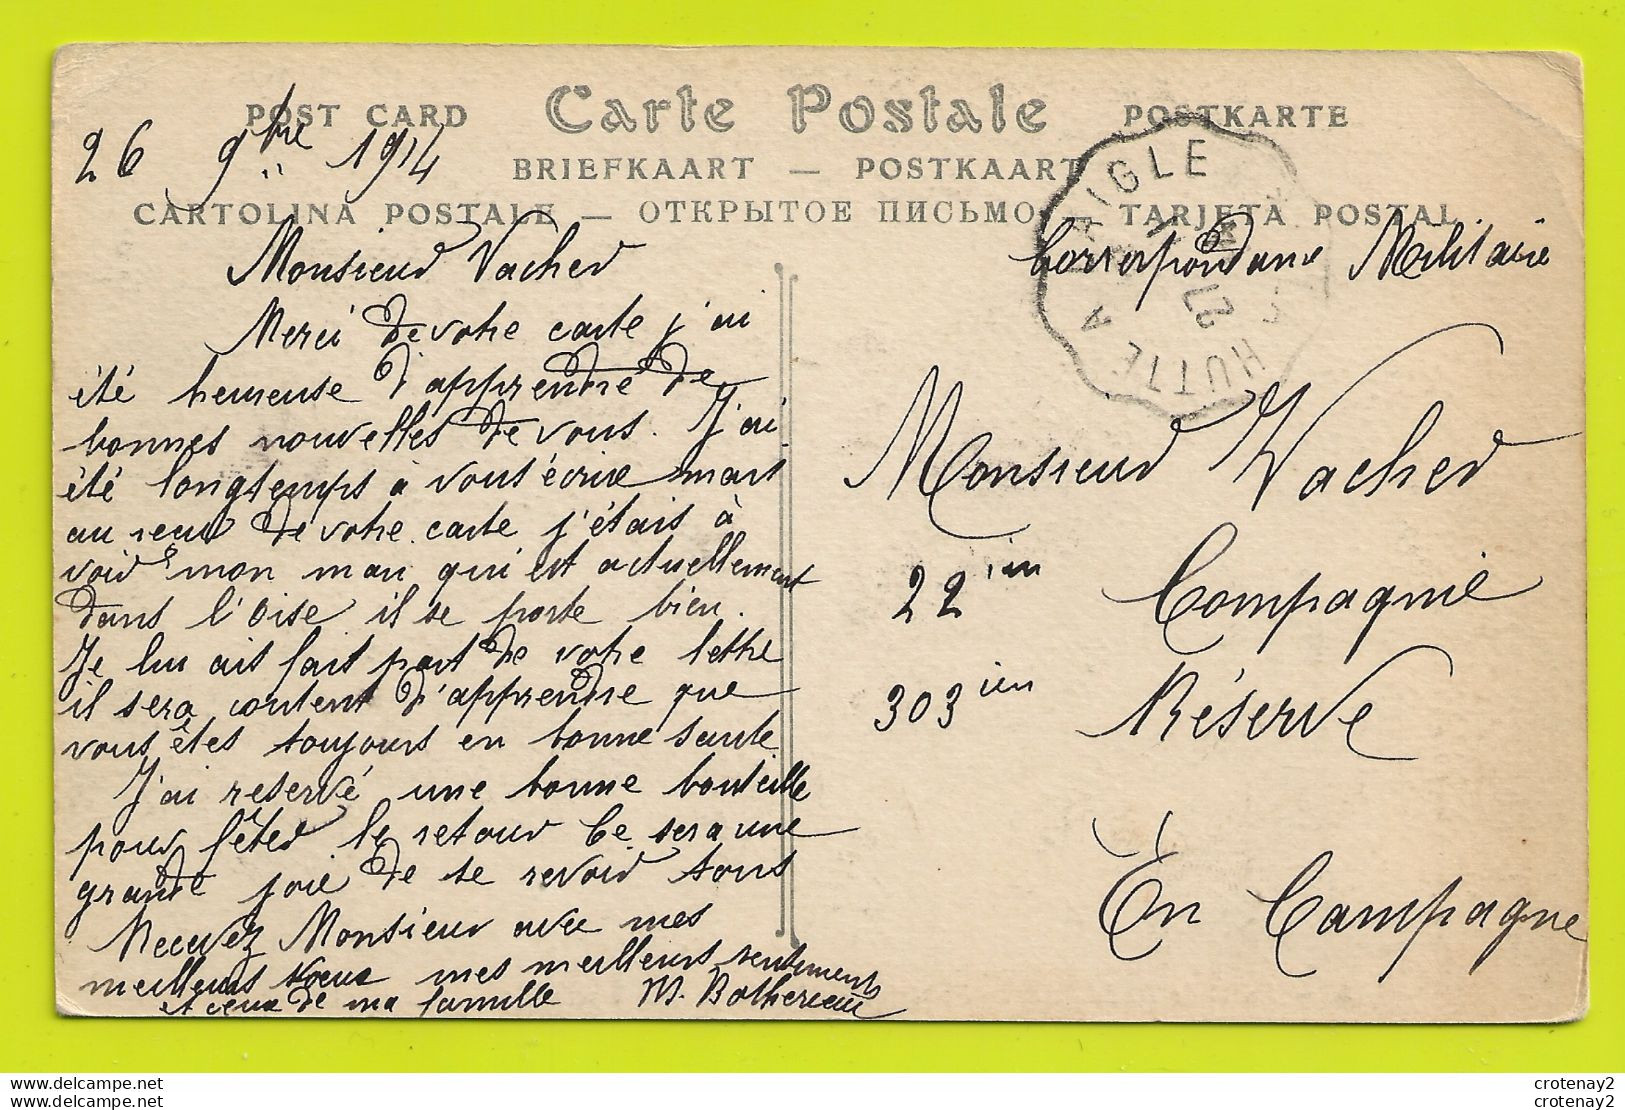 POST CARD Carte Postale POSTKARTE
BRIEFKAART — POSTKAART
CARTOLINA POSTALE — ОТКРЫТОЕ ПИСЬМО — TARJETA POSTAL
26 9bre 1914
Monsieur Vacher
Merci de votre carte j'ai
été heureuse d'apprendre de
bonnes nouvelles de vous. J'ai
été longtemps à vous écrire mais
au reçu de votre carte j'étais à
voir mon mari qui est actuellement
dans l'Oise il se porte bien.
Je lui ais fait part de votre lettre
il sera content d'apprendre que
vous êtes toujours en bonne santé
J'ai reservé une bonne bouteille
pour fêter le retour Ce sera une
grande joie de se revoir tous
Recevez Monsieur avec mes
meilleurs vœux mes meilleurs sentiments
et ceux de ma famille M. Bothereau
Correspondance Militaire
Monsieur Vacher
22 ièm Compagnie
303 ièm Réserve
En Campagne
LAIGLE
27
HUTTE A
delcampe.net
delcampe.net
crotenay2
crotenay2